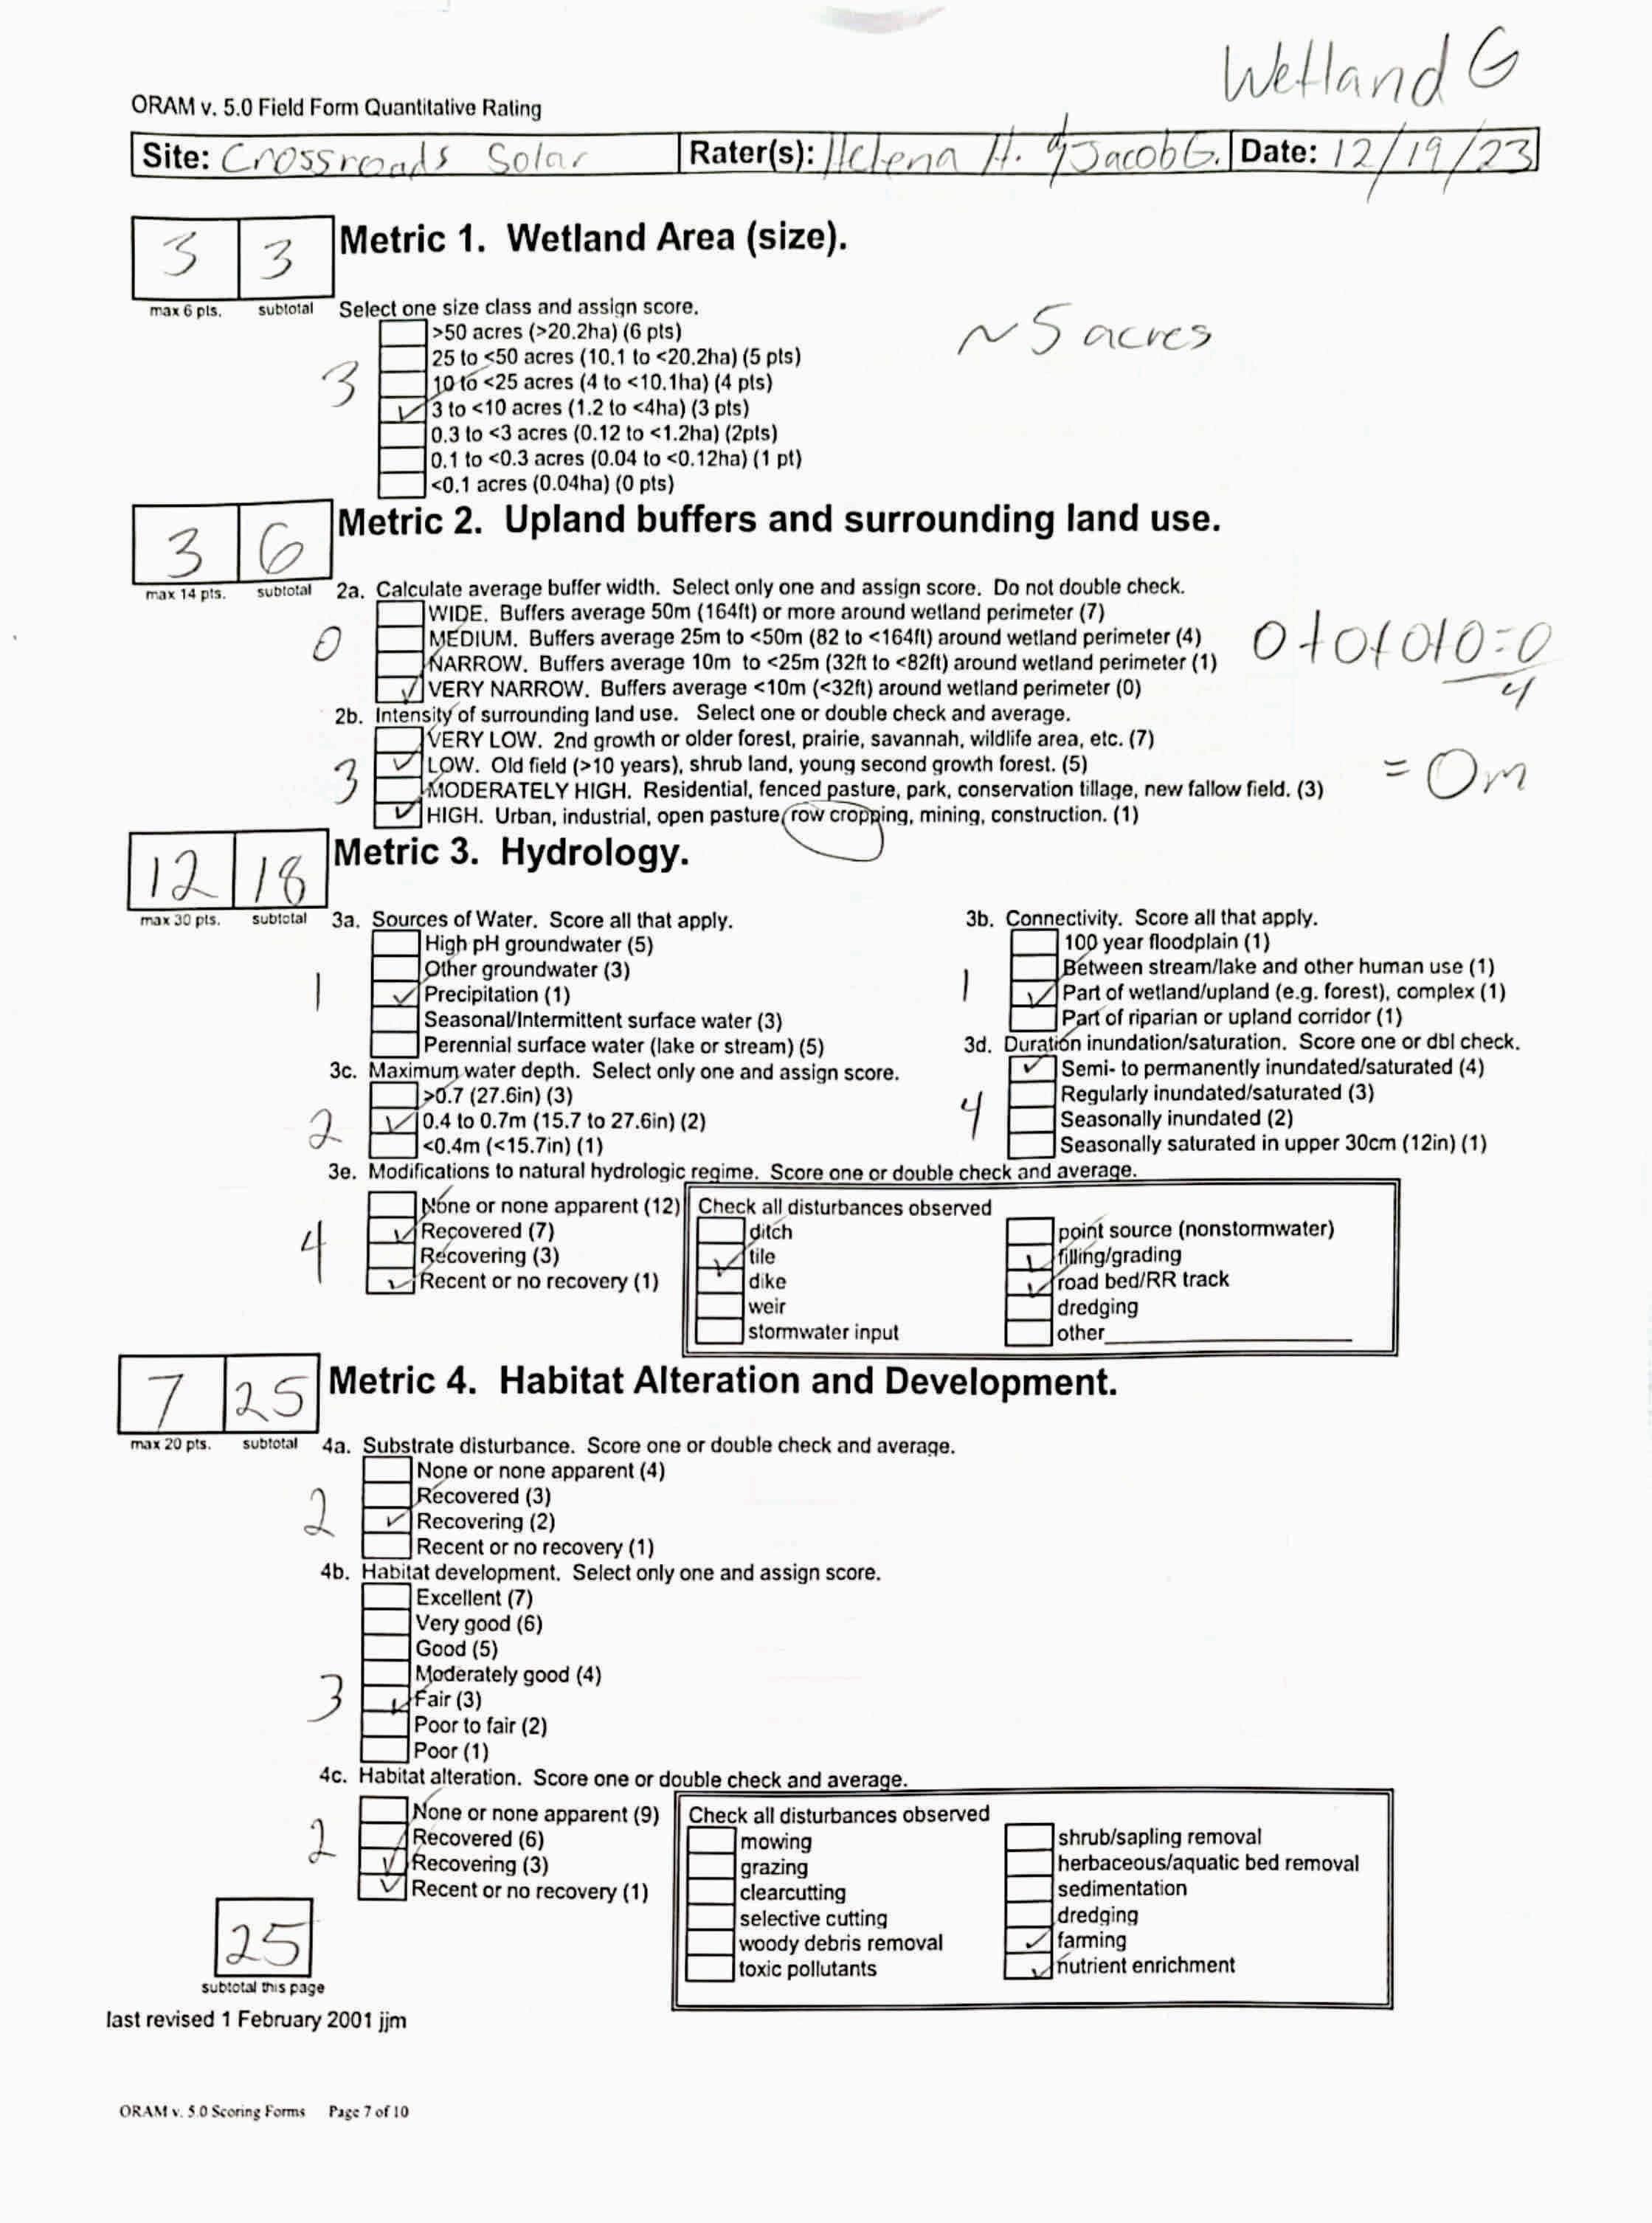 Wetland G
ORAM v. 5.0 Field Form Quantitative Rating
Site: Crossroads Solar Rater(s): Helena H. & Jacob G. Date: 12/19/23
3 3 Metric 1. Wetland Area (size).
max 6 pts. subtotal Select one size class and assign score.
>50 acres (>20.2ha) (6 pts)
~5 acres
25 to <50 acres (10.1 to <20.2ha) (5 pts)
3 10 to <25 acres (4 to <10.1ha) (4 pts)
✓ 3 to <10 acres (1.2 to <4ha) (3 pts)
0.3 to <3 acres (0.12 to <1.2ha) (2pts)
0.1 to <0.3 acres (0.04 to <0.12ha) (1 pt)
<0.1 acres (0.04ha) (0 pts)
3 6 Metric 2. Upland buffers and surrounding land use.
max 14 pts. subtotal 2a. Calculate average buffer width. Select only one and assign score. Do not double check.
WIDE. Buffers average 50m (164ft) or more around wetland perimeter (7)
0 MEDIUM. Buffers average 25m to <50m (82 to <164ft) around wetland perimeter (4) 0+0+0+0=0
NARROW. Buffers average 10m to <25m (32ft to <82ft) around wetland perimeter (1)
✓ VERY NARROW. Buffers average <10m (<32ft) around wetland perimeter (0) 4
2b. Intensity of surrounding land use. Select one or double check and average.
VERY LOW. 2nd growth or older forest, prairie, savannah, wildlife area, etc. (7)
3 ✓ LOW. Old field (>10 years), shrub land, young second growth forest. (5) = 0m
MODERATELY HIGH. Residential, fenced pasture, park, conservation tillage, new fallow field. (3)
✓ HIGH. Urban, industrial, open pasture, row cropping, mining, construction. (1)
12 18 Metric 3. Hydrology.
max 30 pts. subtotal 3a. Sources of Water. Score all that apply. 3b. Connectivity. Score all that apply.
High pH groundwater (5) 100 year floodplain (1)
Other groundwater (3) Between stream/lake and other human use (1)
1 ✓ Precipitation (1) 1 ✓ Part of wetland/upland (e.g. forest), complex (1)
Seasonal/Intermittent surface water (3) Part of riparian or upland corridor (1)
Perennial surface water (lake or stream) (5) 3d. Duration inundation/saturation. Score one or dbl check.
3c. Maximum water depth. Select only one and assign score. ✓ Semi- to permanently inundated/saturated (4)
>0.7 (27.6in) (3) 4 Regularly inundated/saturated (3)
2 ✓ 0.4 to 0.7m (15.7 to 27.6in) (2) Seasonally inundated (2)
<0.4m (<15.7in) (1) Seasonally saturated in upper 30cm (12in) (1)
3e. Modifications to natural hydrologic regime. Score one or double check and average.
None or none apparent (12) Check all disturbances observed
4 ✓ Recovered (7) ditch point source (nonstormwater)
Recovering (3) ✓ tile ✓ filling/grading
✓ Recent or no recovery (1) dike ✓ road bed/RR track
weir dredging
stormwater input other
7 25 Metric 4. Habitat Alteration and Development.
max 20 pts. subtotal 4a. Substrate disturbance. Score one or double check and average.
None or none apparent (4)
Recovered (3)
2 ✓ Recovering (2)
Recent or no recovery (1)
4b. Habitat development. Select only one and assign score.
Excellent (7)
Very good (6)
Good (5)
Moderately good (4)
3 ✓ Fair (3)
Poor to fair (2)
Poor (1)
4c. Habitat alteration. Score one or double check and average.
None or none apparent (9) Check all disturbances observed
2 Recovered (6) mowing shrub/sapling removal
✓ Recovering (3) grazing herbaceous/aquatic bed removal
✓ Recent or no recovery (1) clearcutting sedimentation
selective cutting dredging
25 woody debris removal ✓ farming
toxic pollutants ✓ nutrient enrichment
subtotal this page
last revised 1 February 2001 jjm
ORAM v. 5.0 Scoring Forms Page 7 of 10